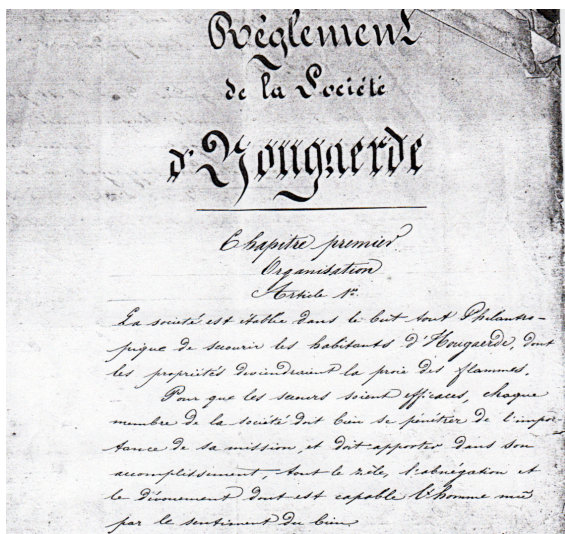 Règlement
de la Société
d'Hougaerde
Chapitre premier
Organisation
Article 1er
La société est établie dans le but tout Philantro-
pique de secourir les habitants d'Hougaerde, dont
les propriétés deviendraient la proie des flammes.
Pour que les secours soient efficaces, chaque
membre de la société doit bien se pénétrer de l'impor-
tance de sa mission, et doit apporter dans son
accomplissement, tout le zèle, l'abnégation et
le dévouement dont est capable l'homme mû
par le sentiment du bien